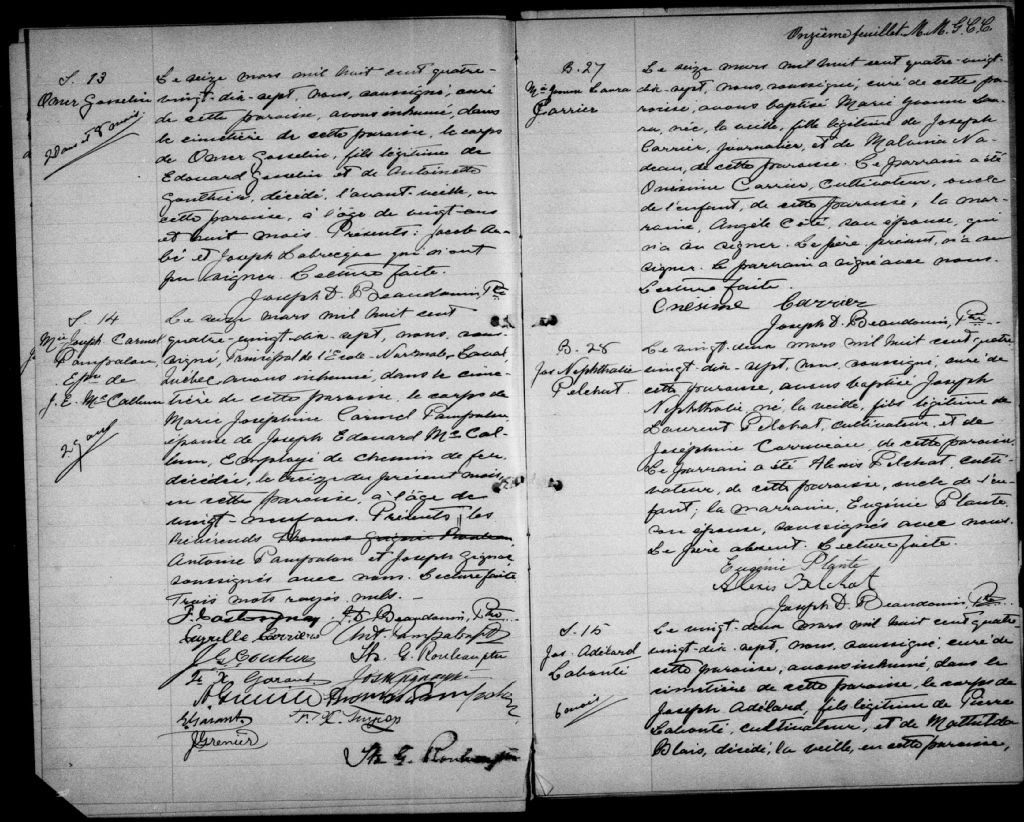 S. 13
Osner Gosselin
20 ans et 8 mois
Le seize mars mil huit cent quatre-
vingt-dix-sept, nous, soussigné, curé
de cette paroisse, avons inhumé, dans
le cimetière de cette paroisse, le corps
de Osner Gosselin, fils légitime de
Edouard Gosselin et de Antoinette
Gauthier, décédé, l'avant-veille, en
cette paroisse, à l'âge de vingt-ans
et huit mois. Présents: Jacob Au-
bé et Joseph Labrecque qui n'ont
pu signer. Lecture faite.
Joseph D. Beaudouin, Ptre
S. 14
Mie Joseph. Carmel
Pampalon,
Epse de
J. E. Mc Callum
29 ans
Le seize mars mil huit cent
quatre-vingt-dix-sept, nous, sous-
signé, Principal de l'école-Normale, Laval,
Québec avons inhumé, dans le cime-
tière de cette paroisse, le corps de
Marie Joséphine Carmel Pampalon,
épouse de Joseph Edouard Mc Cal-
lum, Employé de chemin de fer
décédée, le treize du présent mois,
en cette paroisse, à l'âge de
vingt-neuf ans. Présents, les
Révérends Thomas
Antoine Pampalon et Joseph Gignac
soussignés avec nous. Lecture faite
Trois mots rayés nuls.
J. D. Beaudouin, Ptre
Cyrille Carrier Ant. Pampalon Ptr
J. G. Couture Th. G. Rouleau ptre
F. X. Garant Jos Gignac ptre
Thomas Pampalon
Garant F. X.
J Grenier
Th. G. Rouleau ptre
Onzième feuillet. M. M. G. C. C.
B. 27
Mie Jeanne Laura
Carrier
Le seize mars mil huit cent quatre-vingt-
dix-sept, nous, soussigné, curé de cette pa-
roisse, avons baptisé Marie Jeanne Lau-
ra, née, la veille, fille légitime de Joseph
Carrier, journalier, et de Malvina Na-
deau, de cette paroisse. Le parrain a été
Onésime Carrier, cultivateur, oncle
de l'enfant, de cette paroisse; la mar-
raine, Angèle Coté, son épouse, qui
n'a su signer. Le père, présent, n'a su
signer. Le parrain a signé avec nous.
Lecture faite.
Onésime Carrier
Joseph D. Beaudouin, Ptre
B. 28
Jos Nephthalie
Pelchat
Le vingt-deux mars mil huit cent quatre-
vingt-dix-sept, nous, soussigné, curé de
cette paroisse, avons baptisé Joseph
Nephthalie né, la veille, fils légitime de
Laurent Pelchat, cultivateur, et de
Joséphine Corriveau de cette paroisse.
Le parrain a été Alexis Pelchat, culti-
vateur, de cette paroisse, oncle de l'en-
fant; la marraine, Eugénie Plante
son épouse, soussignés avec nous.
Le père absent. Lecture faite.
Eugénie Plante
Alexis Pelchat
Joseph D. Beaudouin, Ptre
S. 15
Jos. Adélard
Labonté
6 mois
Le vingt-deux mars mil huit cent quatre-
vingt-dix-sept, nous, soussigné, curé de
cette paroisse, avons inhumé, dans le
cimetière de cette paroisse, le corps de
Joseph Adélard, fils légitime de Pierre
Labonté, cultivateur, et de Mathilda
Blais, décédé, la veille, en cette paroisse,